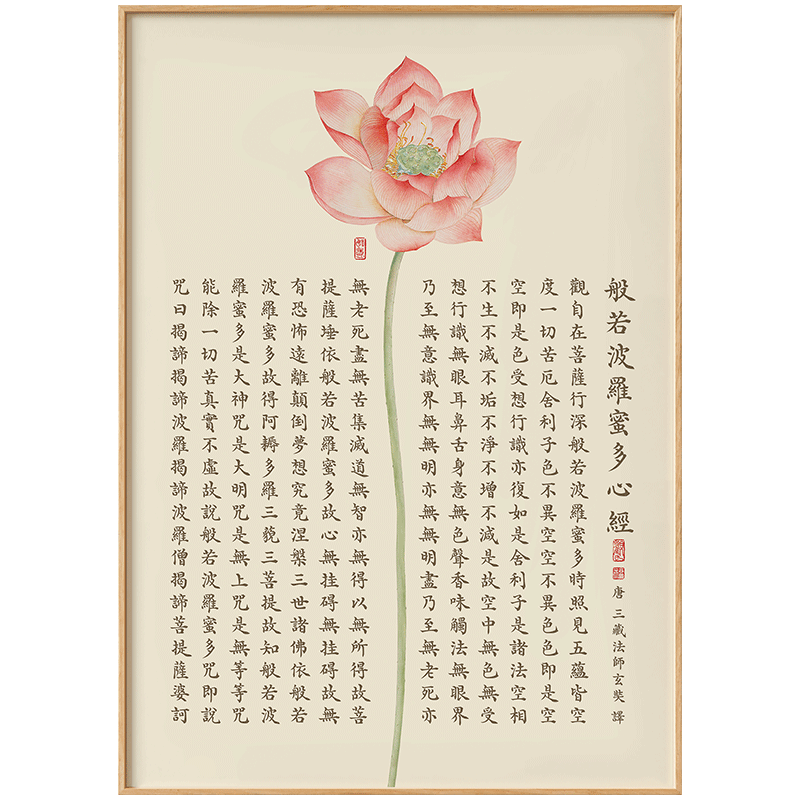 般若波羅蜜多心經
唐三藏法師玄奘譯
觀自在菩薩行深般若波羅蜜多時照見五蘊皆空
度一切苦厄舍利子色不異空空不異色色即是空
空即是色受想行識亦復如是舍利子是諸法空相
不生不滅不垢不淨不增不減是故空中無色無受
想行識無眼耳鼻舌身意無色聲香味觸法無眼界
乃至無意識界無無明亦無無明盡乃至無老死亦
無老死盡無苦集滅道無智亦無得以無所得故菩
提薩埵依般若波羅蜜多故心無挂碍無挂碍故無
有恐怖遠離顛倒夢想究竟涅槃三世諸佛依般若
波羅蜜多故得阿耨多羅三藐三菩提故知般若波
羅蜜多是大神咒是大明咒是無上咒是無等等咒
能除一切苦真實不虛故說般若波羅蜜多咒即說
咒曰揭諦揭諦波羅揭諦波羅僧揭諦菩提薩婆訶